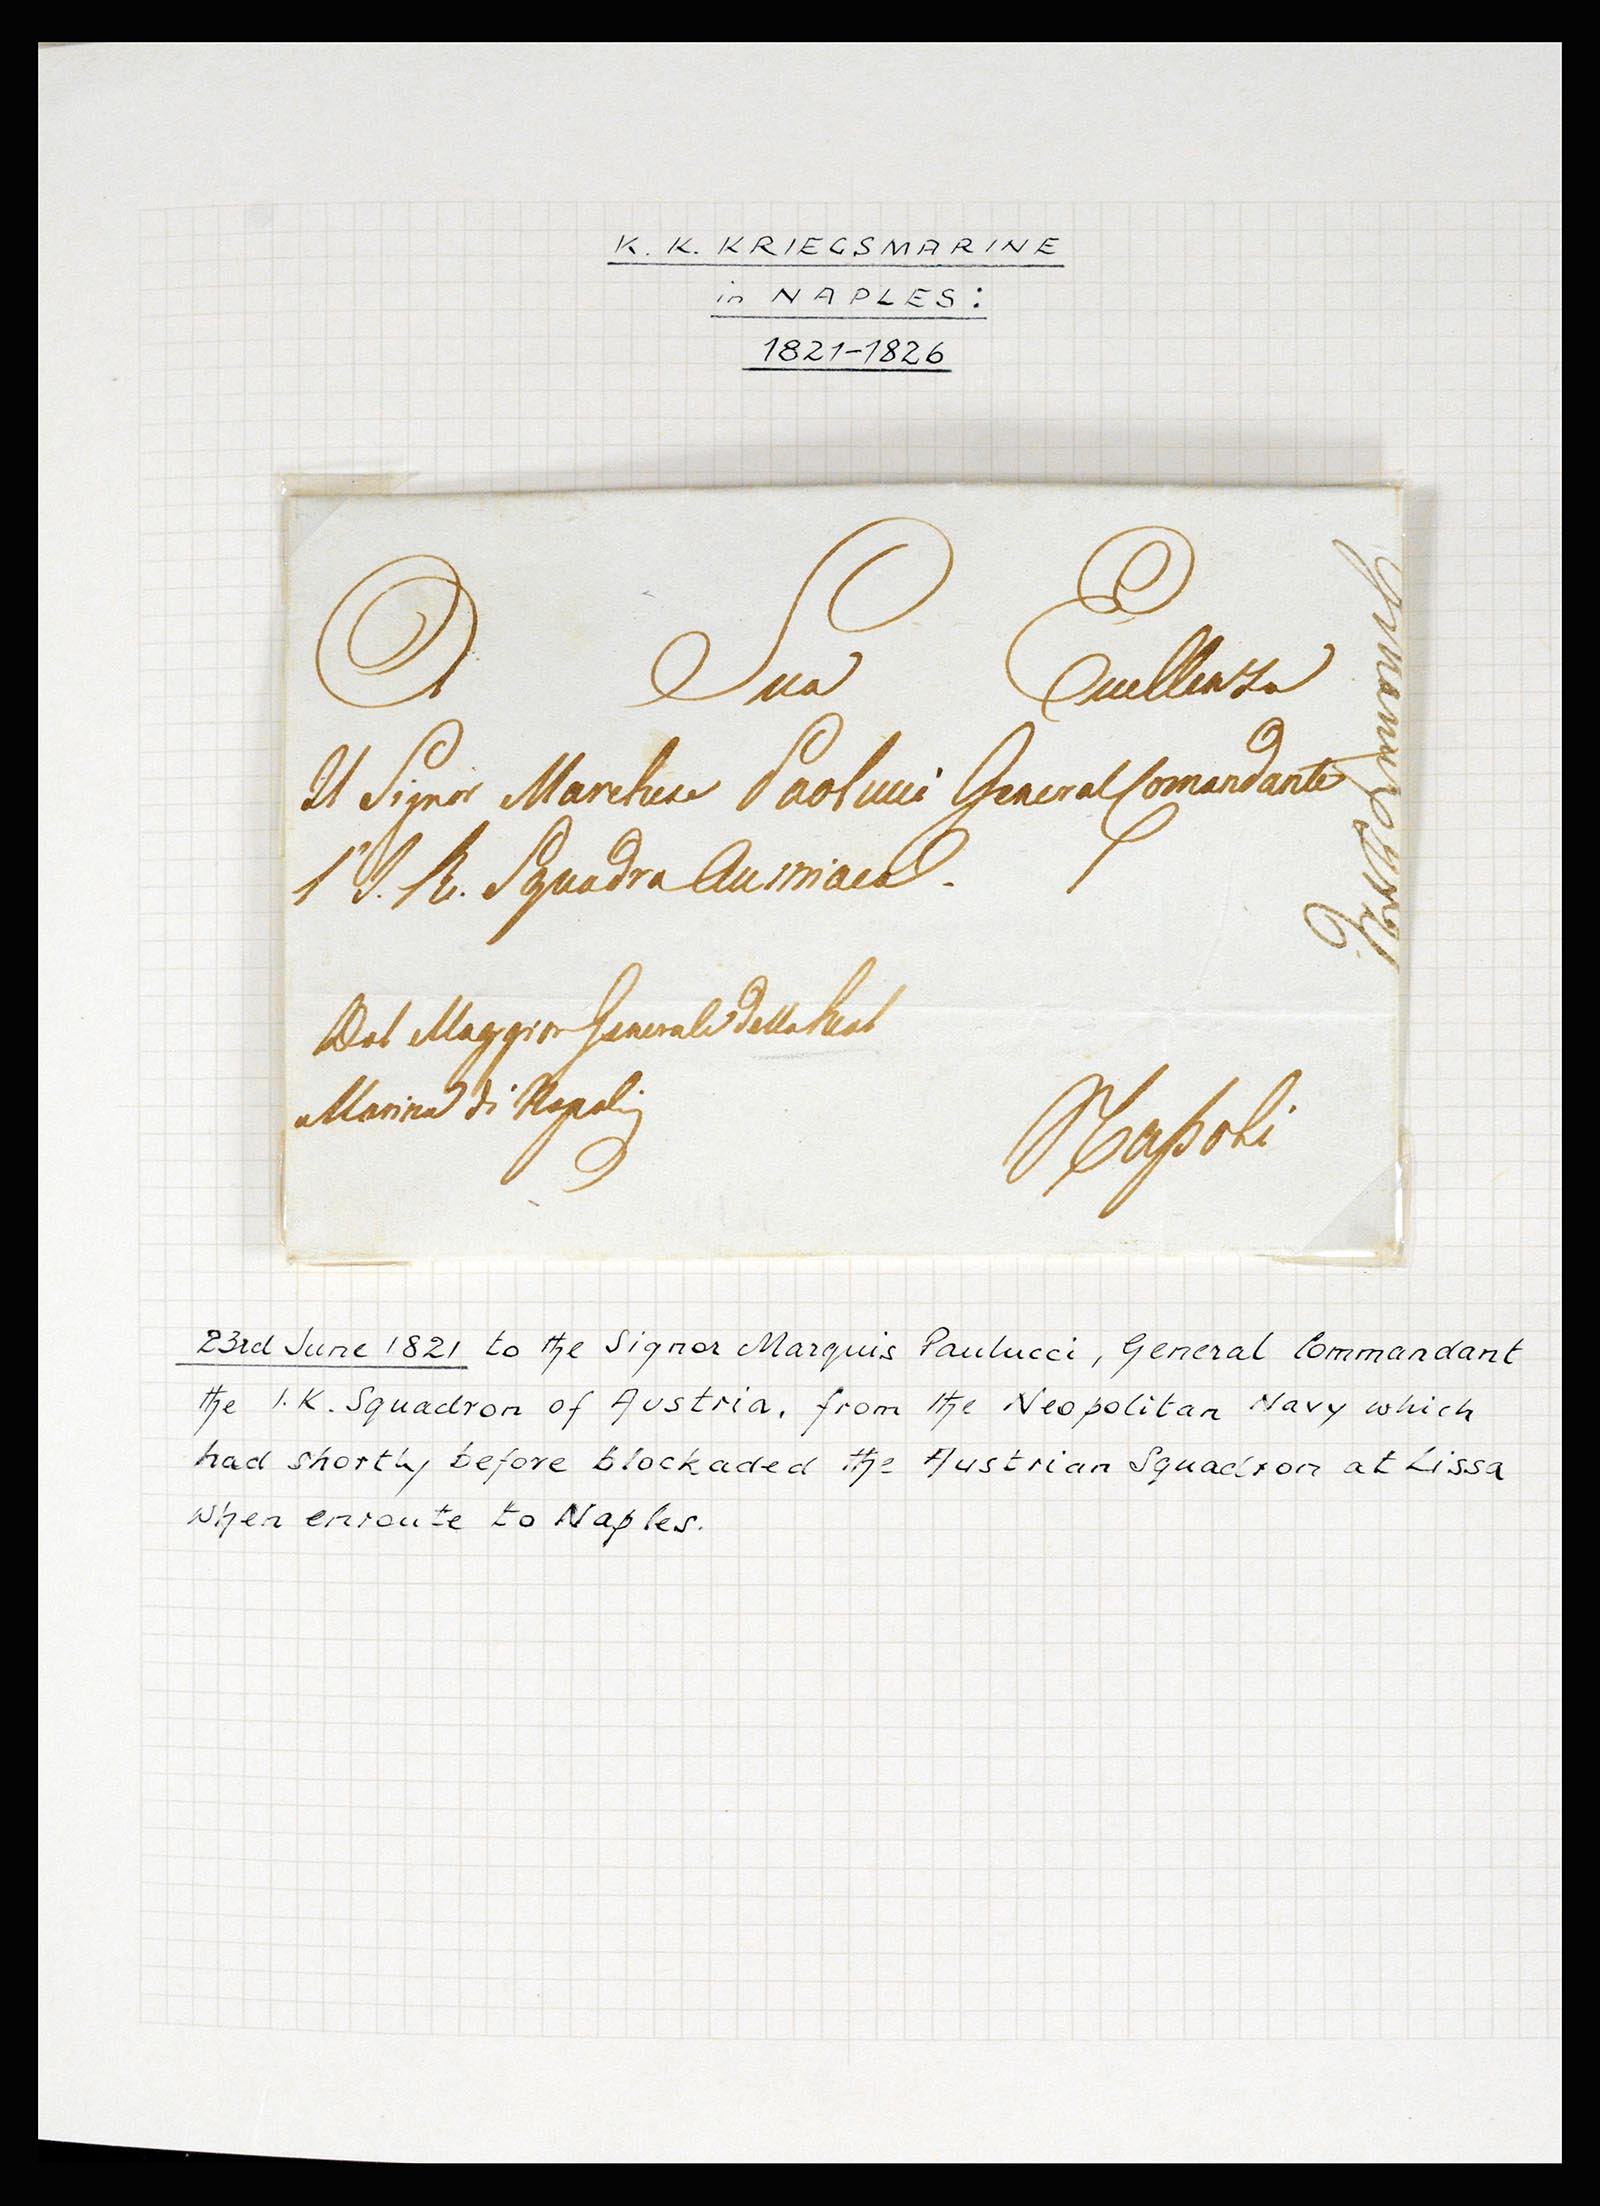 K. K. KRIEGSMARINE
in NAPLES:
1821-1826
A Sua Eccellenza
Il Signor Marchese Paolucci General Comandante
l'I. R. Squadra Austriaca.
Dal Maggior Generale della Real
Marina di Napoli
Napoli
23rd June 1821 to the Signor Marquis Paulucci, General Commandant
the I.K. Squadron of Austria, from the Neopolitan Navy which
had shortly before blockaded the Austrian Squadron at Lissa
when enroute to Naples.